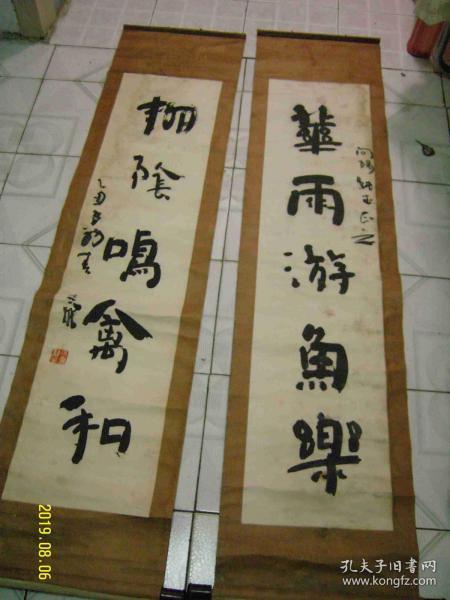 華雨游魚樂
向陽 正之
柳陰鳴禽和
乙丑 初春
2019.08.06
孔夫子旧书网
www.kongfz.com